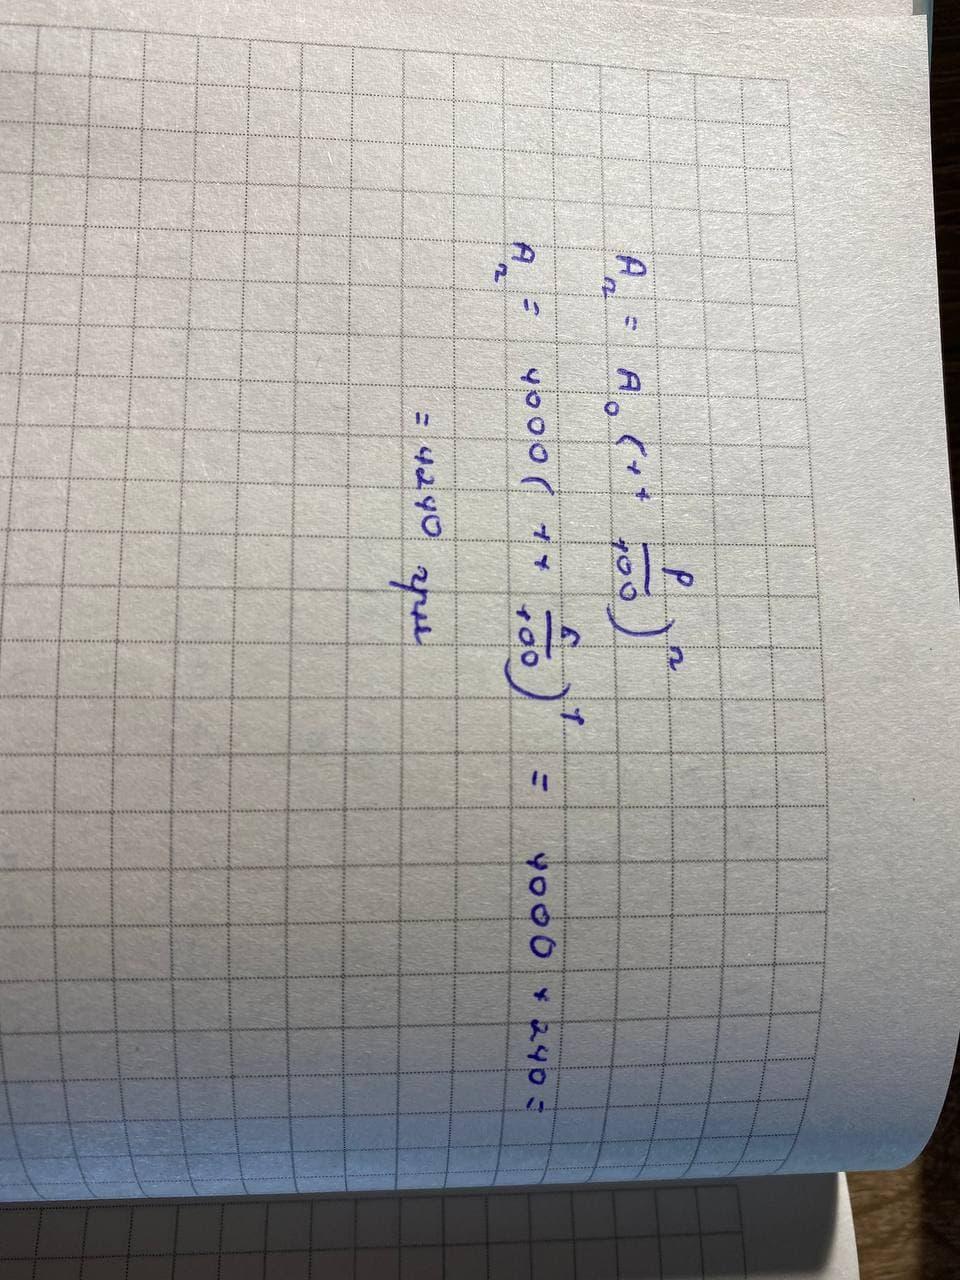 Aₙ = A₀(1 + p/100)ⁿ
Aₙ = 4000(1 + 6/100)¹ = 4000 + 240 =
= 4240 грн